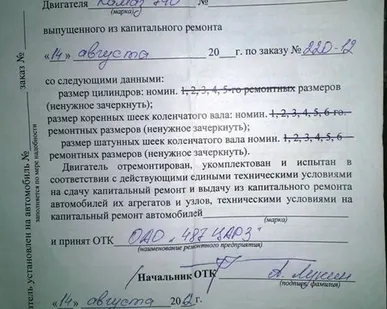 Двигателя Камаз 740 №
(марка)
выпущенного из капитального ремонта
«14» августа 20 г. по заказу № 220-12
со следующими данными:
размер цилиндров: номин. 1, 2, 3, 4, 5-го ремонтных размеров
(ненужное зачеркнуть);
размер коренных шеек коленчатого вала: номин. 1, 2, 3, 4, 5, 6-го
ремонтных размеров (ненужное зачеркнуть);
размер шатунных шеек коленчатого вала номин. 1, 2, 3, 4, 5, 6
ремонтных размеров (ненужное зачеркнуть).
Двигатель отремонтирован, укомплектован и испытан в
соответствии с действующими едиными техническими условиями
на сдачу капитальный ремонт и выдачу из капитального ремонта
автомобилей их агрегатов и узлов, техническими условиями на
капитальный ремонт автомобилей
(марка)
и принят ОТК ОАО "487 ЦАРЗ"
(наименование ремонтного предприятия)
Начальник ОТК
(подпись, фамилия)
«14» августа 20
тель установлен на автомобиль №
заказ №
заполняется по мере надобности